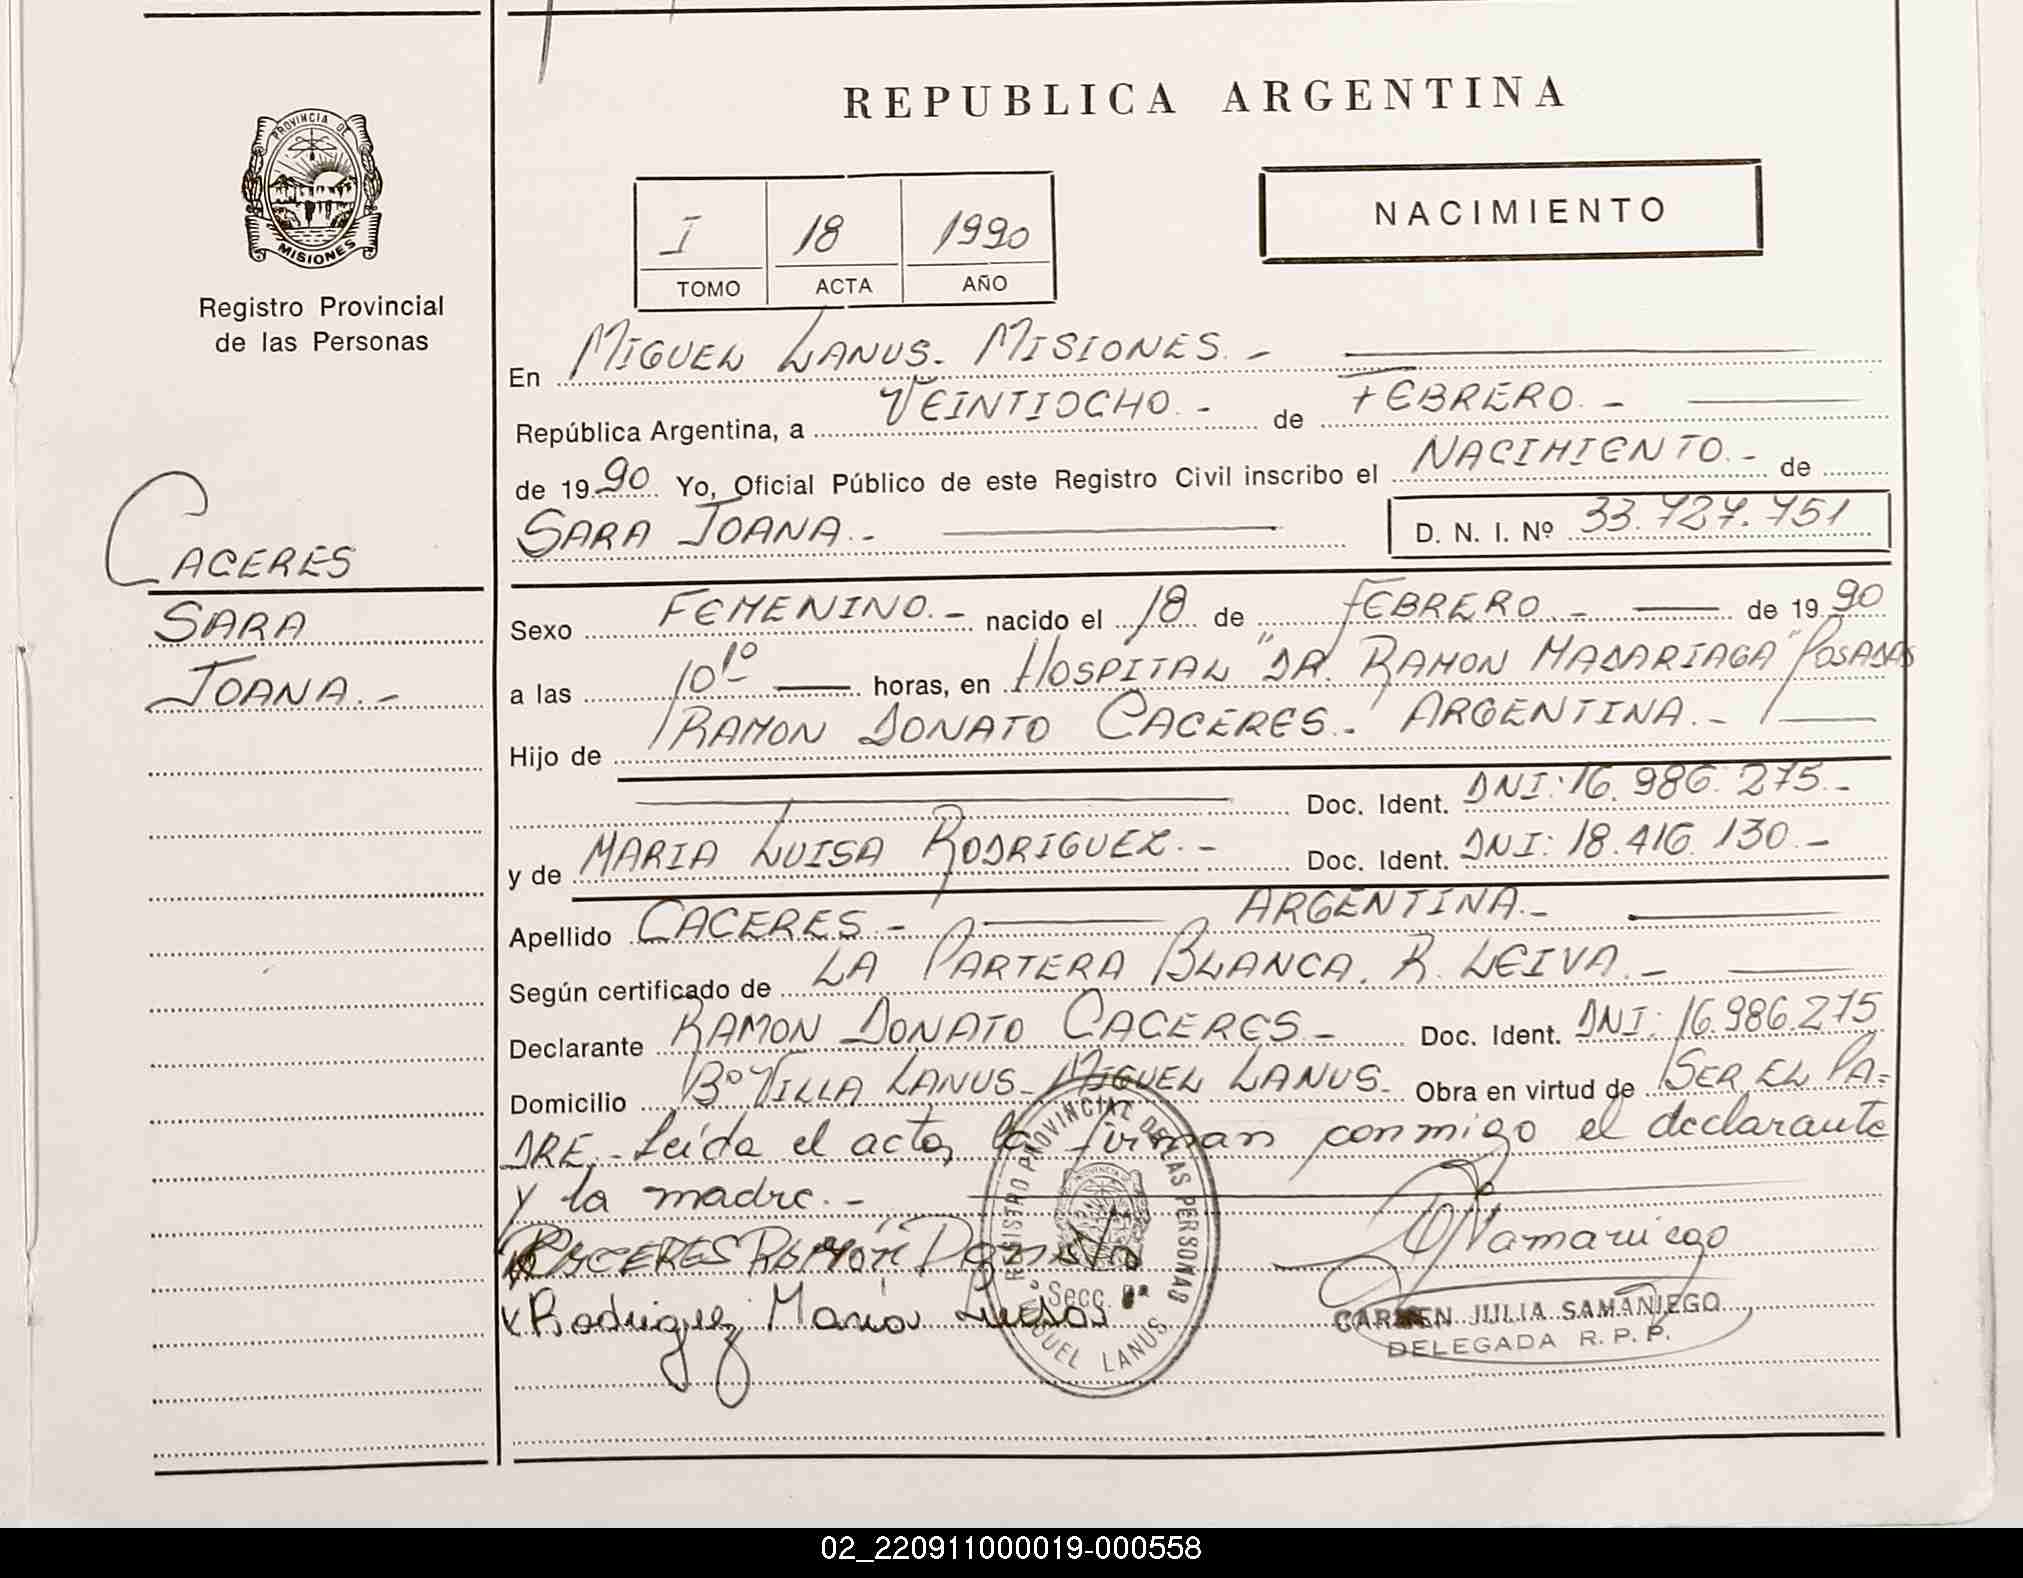 REPUBLICA ARGENTINA
PROVINCIA DE
MISIONES
Registro Provincial
de las Personas
I 18 1990
TOMO ACTA AÑO
NACIMIENTO
CACERES
SARA
JOANA.-
En MIGUEL LANUS. MISIONES.-
República Argentina, a VEINTIOCHO.- de FEBRERO.-
de 1990 Yo, Oficial Público de este Registro Civil inscribo el NACIMIENTO.- de
SARA JOANA.- D. N. I. Nº 33.727.751
Sexo FEMENINO.- nacido el 18 de FEBRERO.- de 1990
a las 10 10 horas, en HOSPITAL "DR. RAMON MADARIAGA" POSADAS
Hijo de RAMON DONATO CACERES.- ARGENTINA.-
Doc. Ident. DNI: 16.986.275.-
y de MARIA LUISA RODRIGUEZ.- Doc. Ident. DNI: 18.416.130.-
Apellido CACERES.- ARGENTINA.-
Según certificado de LA PARTERA BLANCA. R. LEIVA.-
Declarante RAMON DONATO CACERES.- Doc. Ident. DNI: 16.986.275
Domicilio Bº VILLA LANUS- MIGUEL LANUS.- Obra en virtud de SER EL PA=
DRE.- Leída el acta, la firman conmigo el declarante
y la madre.-
CACERES RAMÓN Donato
Rodriguez María Luisa
REGISTRO PROVINCIAL DE LAS PERSONAS
Secc.
MIGUEL LANUS
CJSamaniego
CARMEN JULIA SAMANIEGO
DELEGADA R. P. P.
02_220911000019-000558